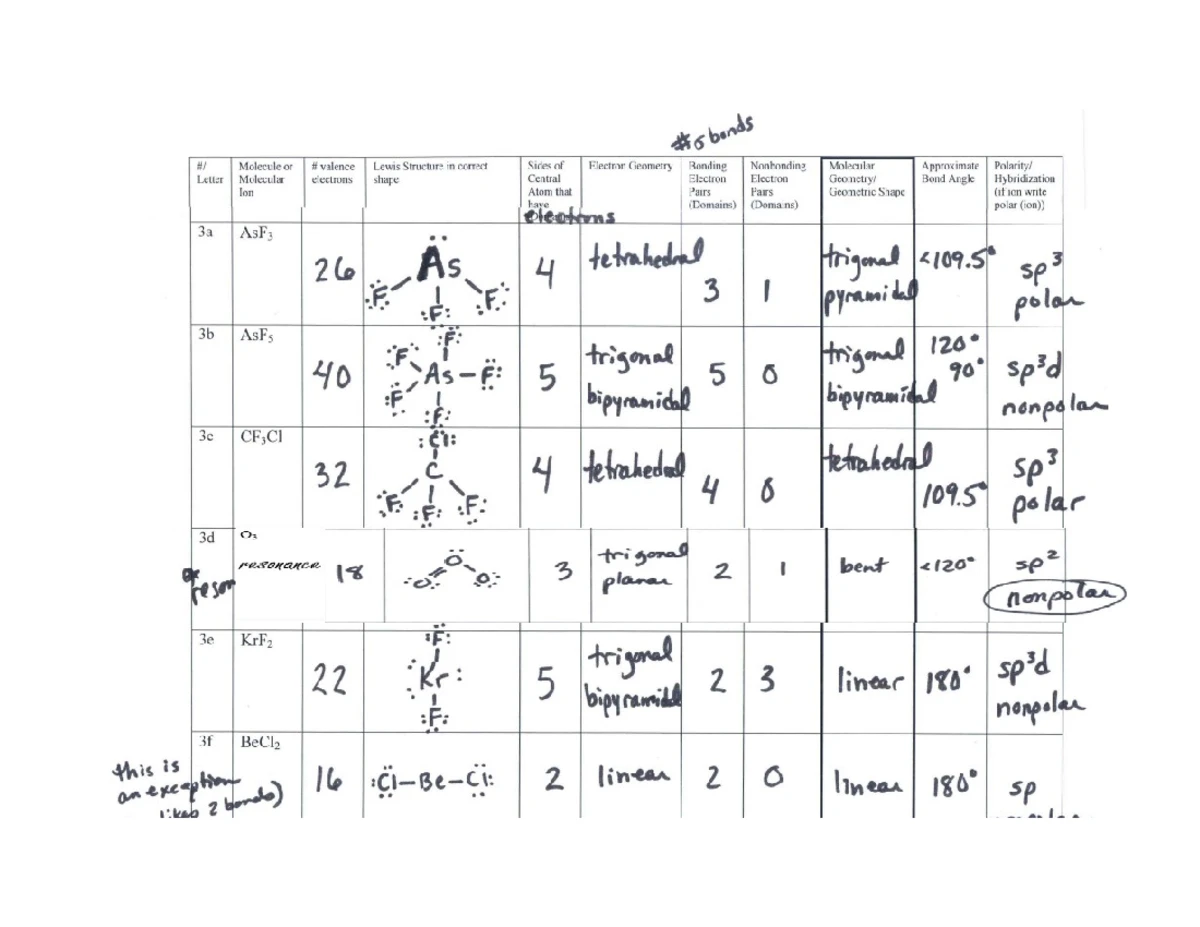 #σ bonds
#/ Letter
Molecule or Molecular Ion
# valence electrons
Lewis Structure in correct shape
Sides of Central Atom that have
electrons
Electron Geometry
Bonding Electron Pairs (Domains)
Nonbonding Electron Pairs (Domains)
Molecular Geometry/ Geometric Shape
Approximate Bond Angle
Polarity/ Hybridization (if ion write polar (ion))
3a
AsF₃
26
As
F
F
F
4
tetrahedral
3
1
trigonal
pyramidal
<109.5°
sp³
polar
3b
AsF₅
40
F
F
As–F
F
F
5
trigonal
bipyramidal
5
0
trigonal
bipyramidal
120°
90°
sp³d
nonpolar
3c
CF₃Cl
32
Cl
C
F
F
F
4
tetrahedral
4
0
tetrahedral
109.5°
sp³
polar
3d
O₃
resonance
reson
18
O
O
O
3
trigonal
planar
2
1
bent
<120°
sp²
nonpolar
3e
KrF₂
22
F
Kr
F
5
trigonal
bipyramidal
2
3
linear
180°
sp³d
nonpolar
3f
BeCl₂
this is
an exception
likes 2 bonds)
16
Cl–Be–Cl
2
linear
2
0
linear
180°
sp